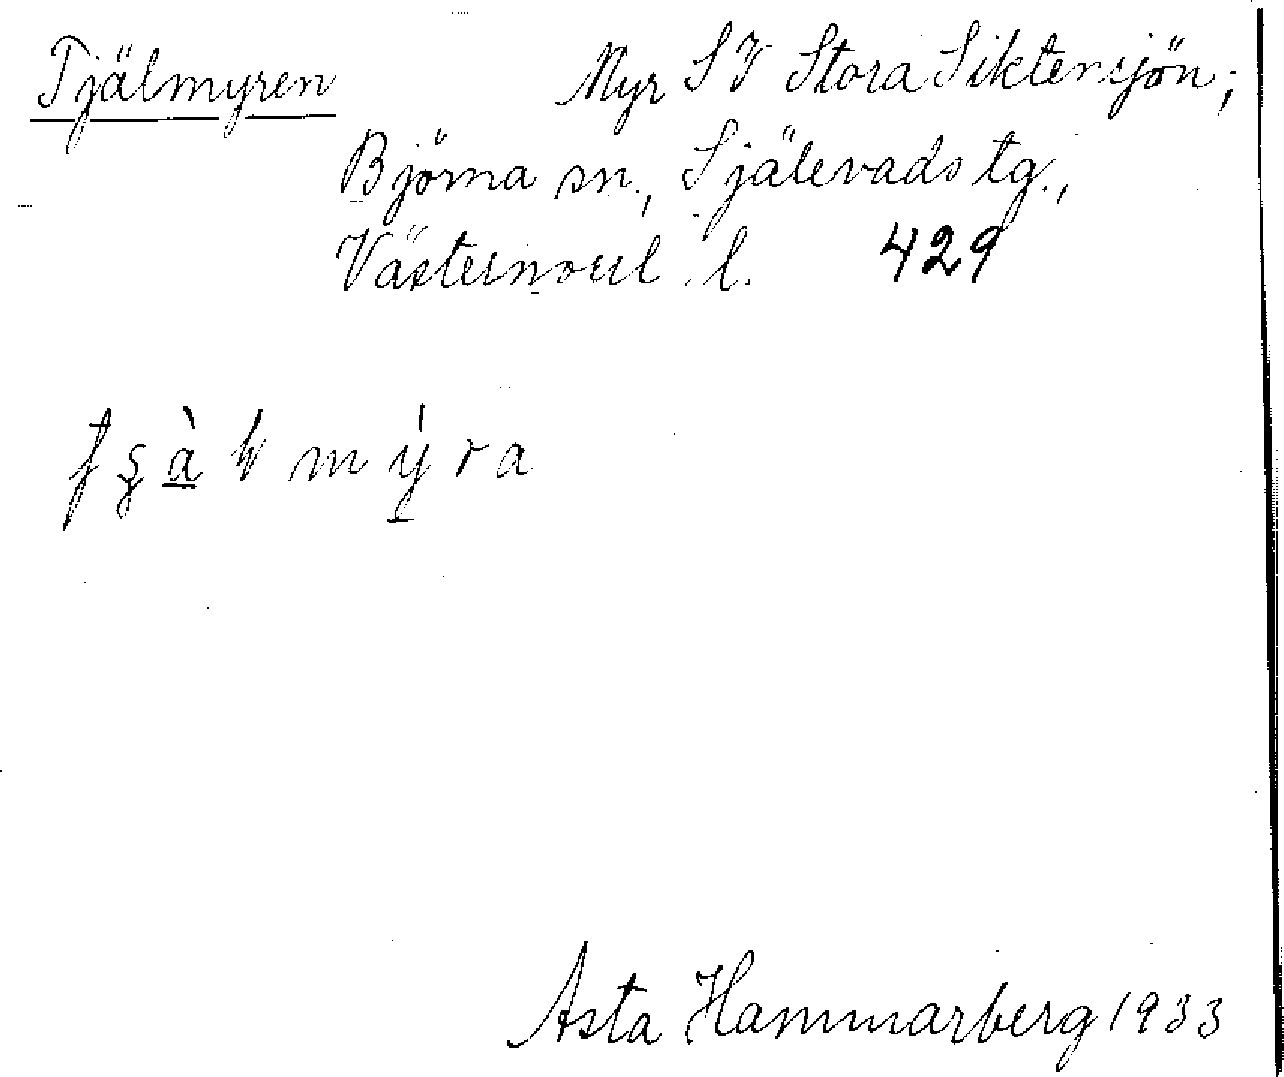 Tjälmyren Myr SV Stora Siktensjön;
Björna sn., Själevads tg.,
Västernorrl. l. 429
mýra
Asta Hammarberg 1933